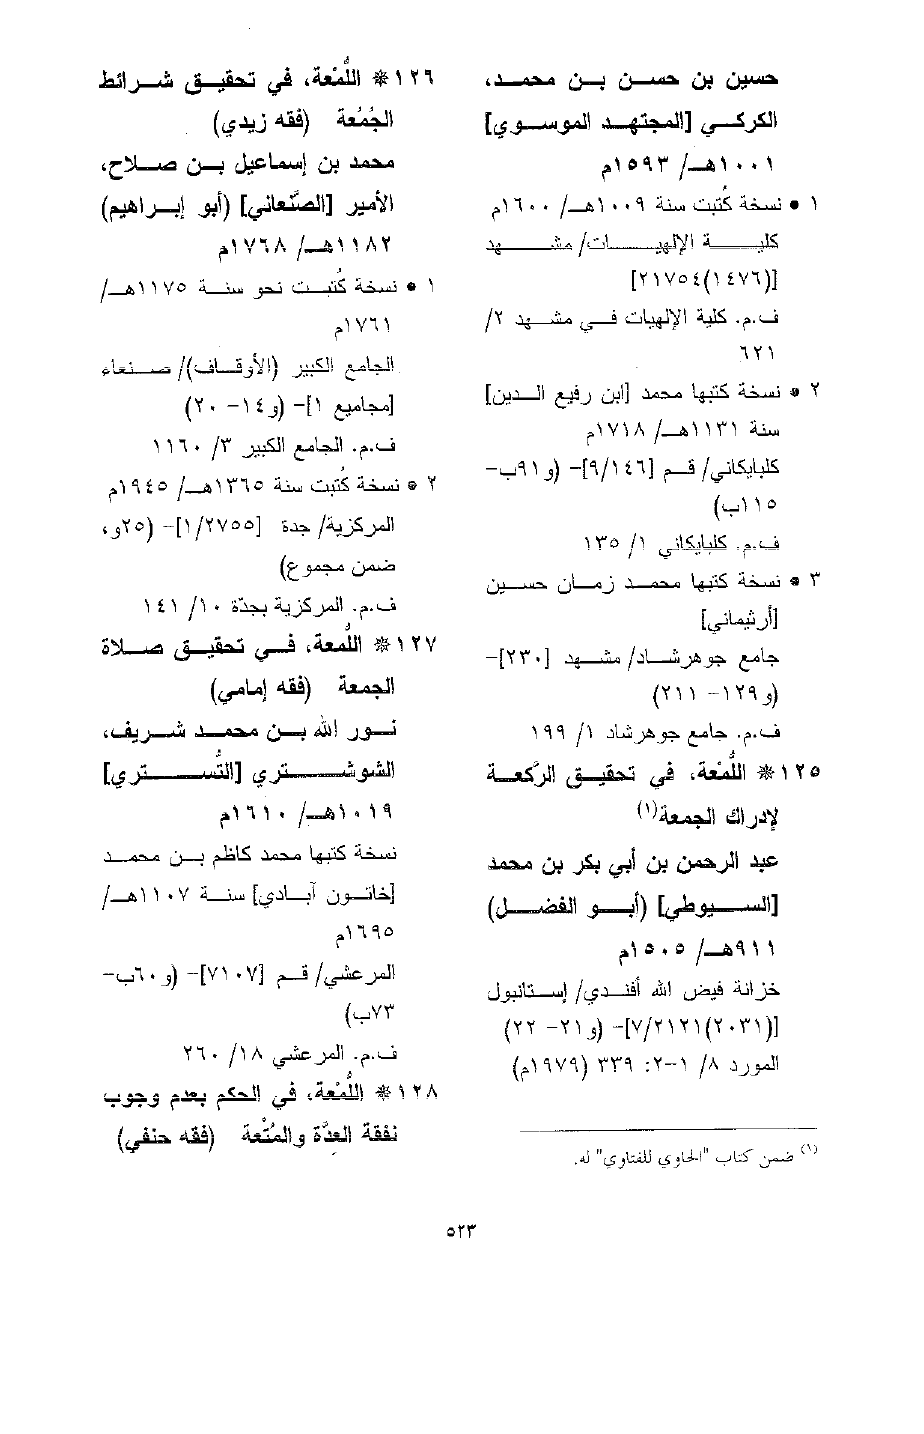 حسين بن حسن بن محمد،
الكركي [المجتهد الموسوي]
١٠٠١هـ/ ١٥٩٣م
١ • نسخة كُتبت سنة ١٠٠٩هـ/ ١٦٠٠م
كلية الإلهيات/ مشهد
[(١٤٧٦)٢١٧٥٤]
ف.م. كلية الإلهيات في مشهد ٢/
٦٢١
٢ • نسخة كتبها محمد [ابن رفيع الدين]
سنة ١١٣١هـ/ ١٧١٨م
كلبايكاني/ قم [٩/١٤٦]- (و٩١ب-
١١٥ب)
ف.م. كلبايكاني ١/ ١٣٥
٣ • نسخة كتبها محمد زمان حسين
[أرثيماني]
جامع جوهرشاد/ مشهد [٢٣٠]-
(و١٢٩- ٢١١)
ف.م. جامع جوهرشاد ١/ ١٩٩
١٢٥ * اللُّمْعة، في تحقيق الرّكعة
لإدراك الجمعة(١)
عبد الرحمن بن أبي بكر بن محمد
[السيوطي] (أبو الفضل)
٩١١هـ/ ١٥٠٥م
خزانة فيض الله أفندي/ إستانبول
[(٢٠٣١)٧/٢١٢١]- (و٢١- ٢٢)
المورد ٨/ ١-٢: ٣٣٩ (١٩٧٩م)
(١) ضمن كتاب "الحاوي للفتاوي" له.
١٢٦ * اللُّمْعة، في تحقيق شرائط
الجُمُعة (فقه زيدي)
محمد بن إسماعيل بن صلاح،
الأمير [الصّنعاني] (أبو إبراهيم)
١١٨٢هـ/ ١٧٦٨م
١ • نسخة كُتبت نحو سنة ١١٧٥هـ/
١٧٦١م
الجامع الكبير (الأوقاف)/ صنعاء
[مجاميع ١]- (و١٤- ٢٠)
ف.م. الجامع الكبير ٣/ ١١٦٠
٢ • نسخة كُتبت سنة ١٣٦٥هـ/ ١٩٤٥م
المركزية/ جدة [١/٢٧٥٥]- (٢٥و،
ضمن مجموع)
ف.م. المركزية بجدّة ١٠/ ١٤١
١٢٧ * اللُّمعة، في تحقيق صلاة
الجمعة (فقه إمامي)
نور الله بن محمد شريف،
الشوشتري [التُّستري]
١٠١٩هـ/ ١٦١٠م
نسخة كتبها محمد كاظم بن محمد
[خاتون آبادي] سنة ١١٠٧هـ/
١٦٩٥م
المرعشي/ قم [٧١٠٧]- (و٦٠ب-
٧٣ب)
ف.م. المرعشي ١٨/ ٢٦٠
١٢٨ * اللُّمْعة، في الحكم بعدم وجوب
نفقة العدّة والمُتْعة (فقه حنفي)
٥٢٣